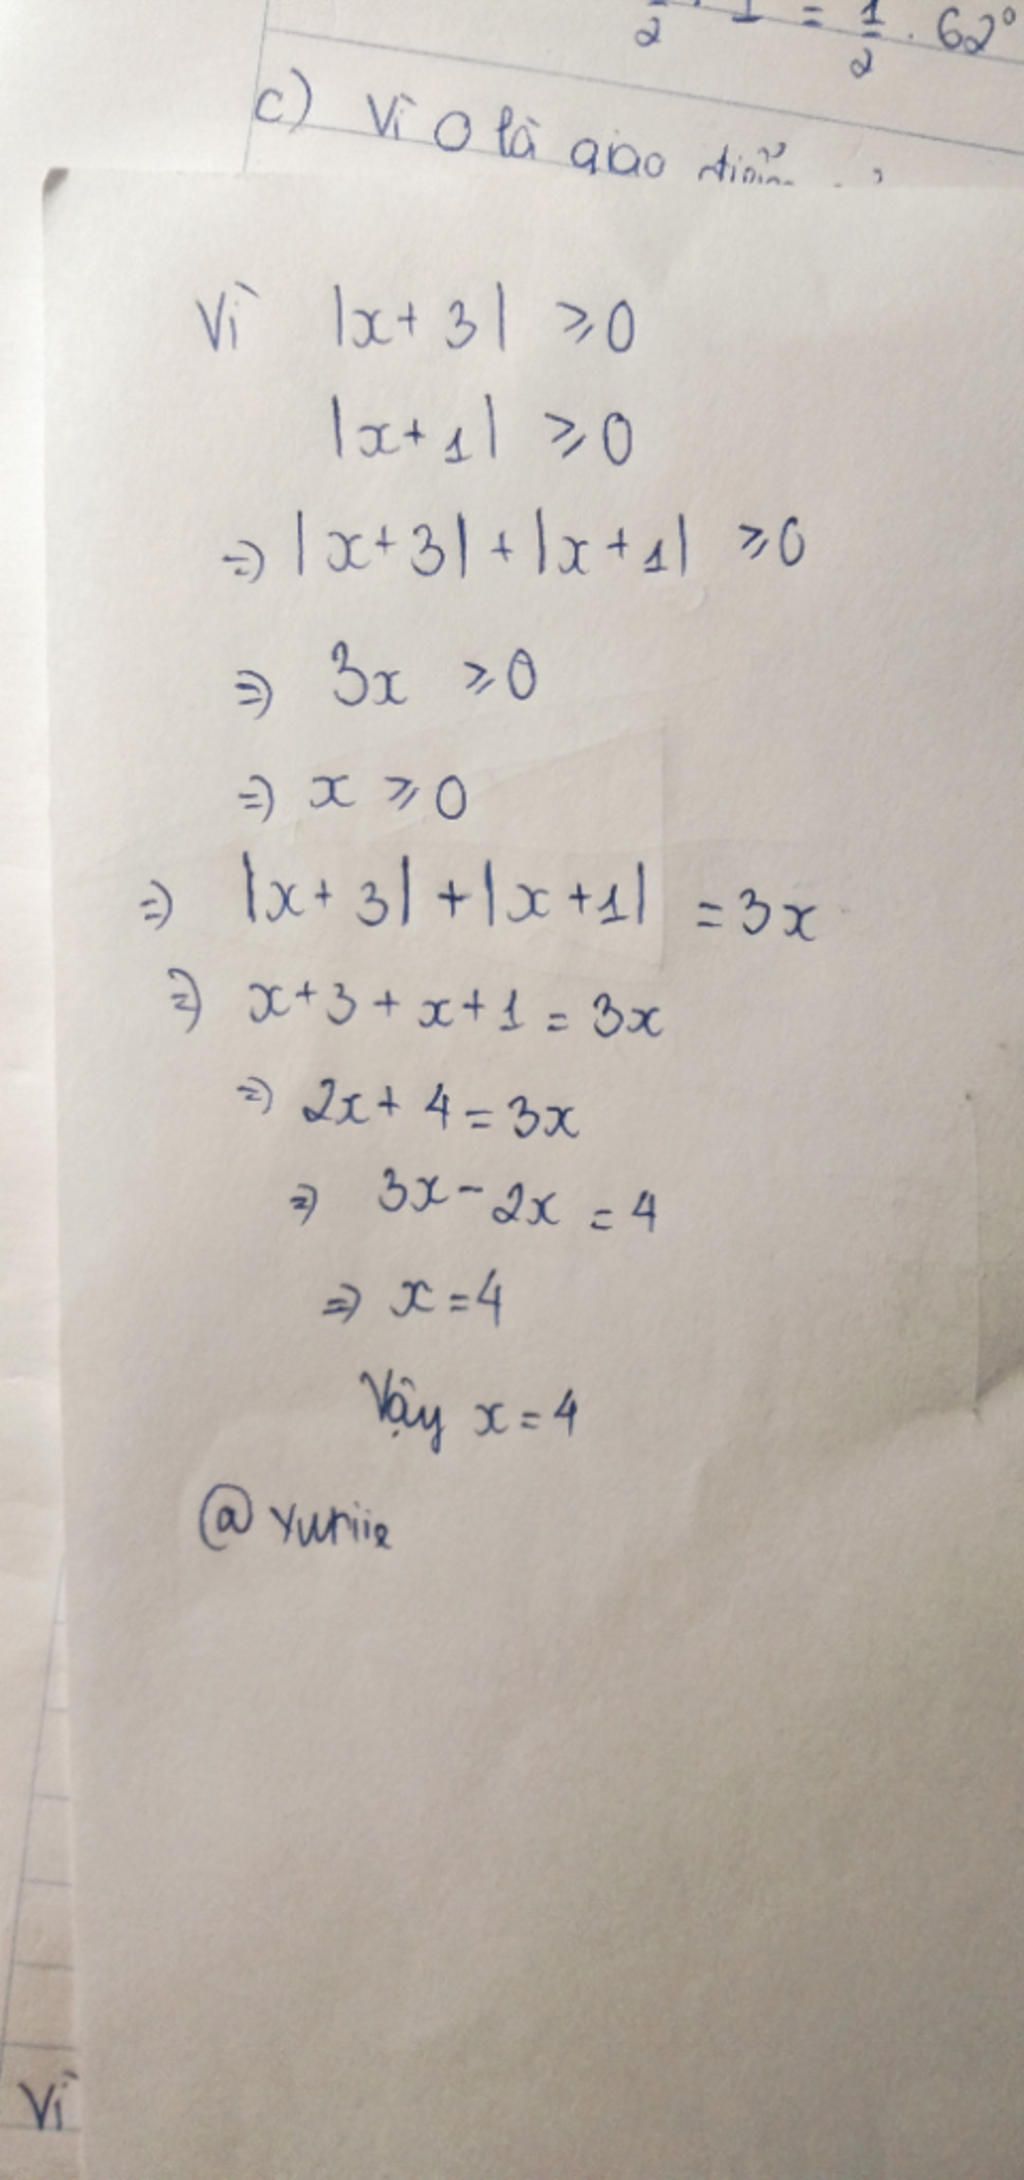 1/2 . 1 = 1/2 . 62°
c) Vì O là giao
Vì |x+3| ⩾0
|x+1| ⩾0
=> |x+3|+|x+1| ⩾0
=> 3x ⩾0
=> x ⩾0
=> |x+3|+|x+1| =3x
=> x+3+x+1=3x
=> 2x+4=3x
=> 3x-2x=4
=> x=4
Vậy x=4
@yuriie
Vì